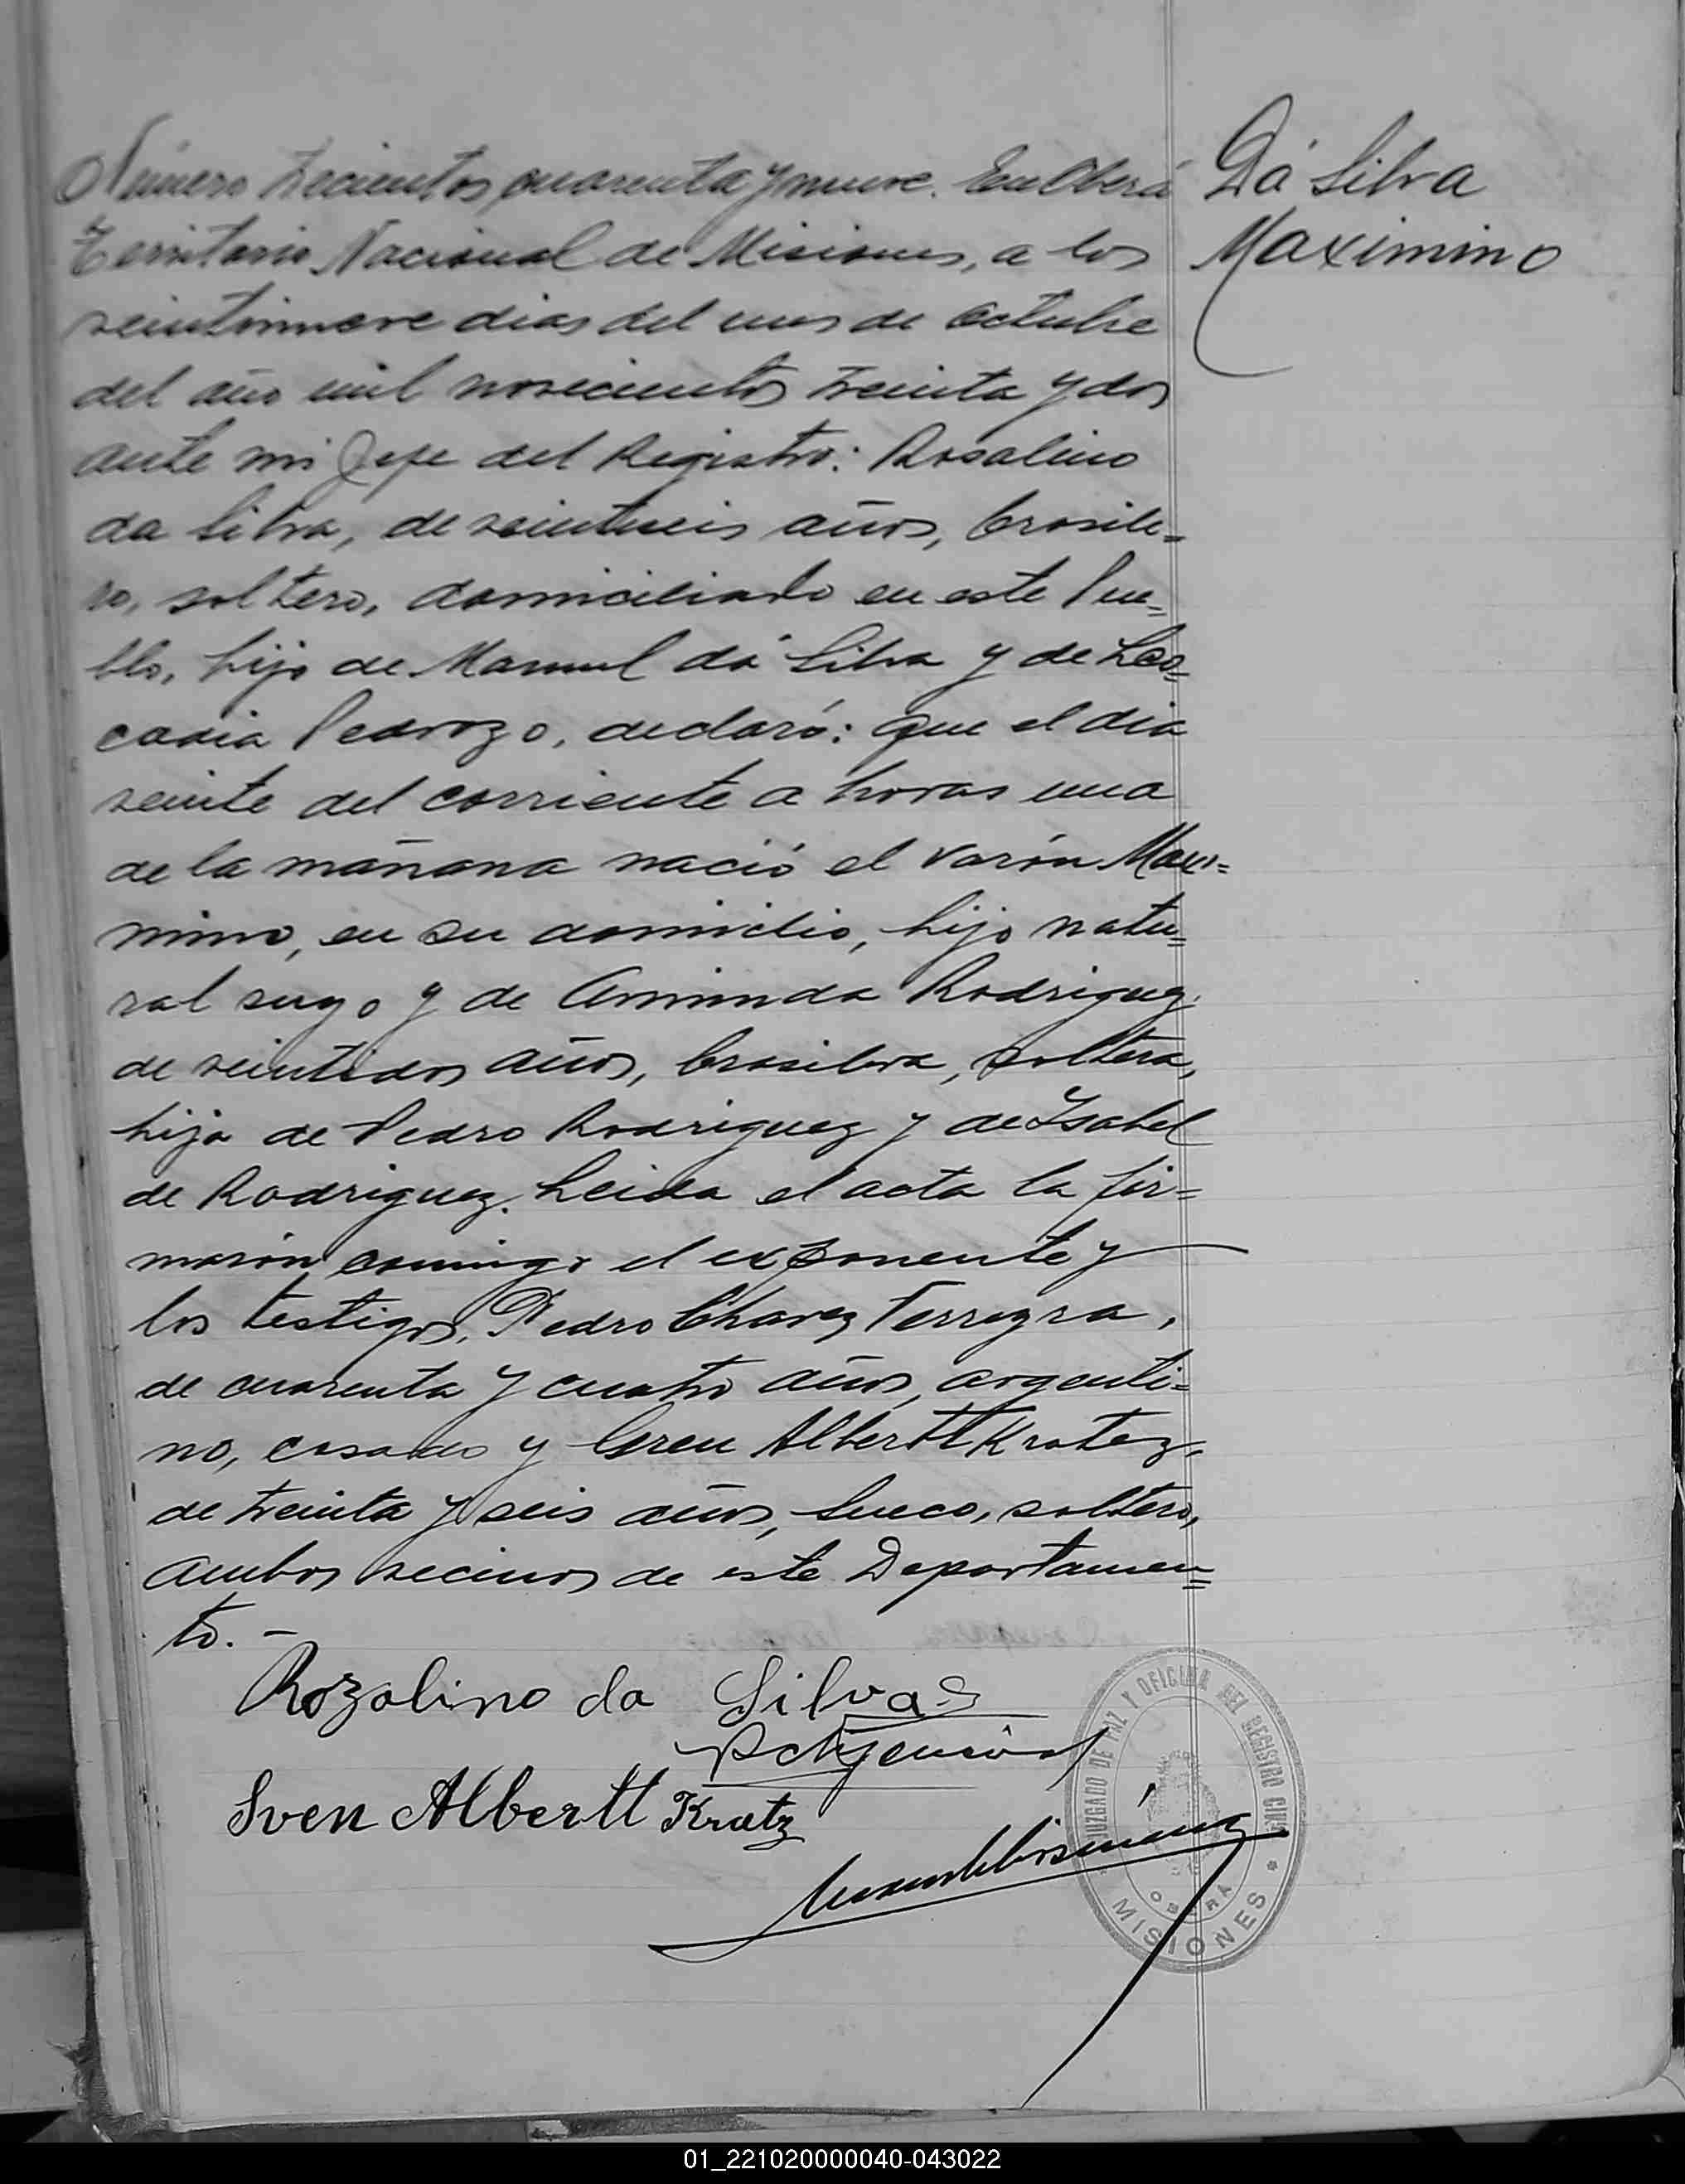 Número trecientos cuarenta y nueve. En Oberá
Dá Silva
Maximino
Territorio Nacional de Misiones, a los
veintinueve dias del mes de Octubre
del año mil novecientos treinta y dos
ante mi Jefe del Registro: Rosalino
da Silva, de veintiseis años, brasile=
ro, soltero, domiciliado en este Pue=
blo, hijo de Manuel dá Silva y de Leo=
cadia Pedrozo, declaró: que el dia
veinte del corriente a horas una
de la mañana nació el varón Maxi=
mino, en su domicilio, hijo natu=
ral suyo y de Arminda Rodriguez
de veintidos años, brasilera, soltera,
hija de Pedro Rodriguez y de Isabel
de Rodriguez. Leida el acta la fir=
marón conmigo el exponente y
los testigos, Pedro Chavez Ferreyra,
de cuarenta y cuatro años, argenti=
no, casado y Sven Albertl Kratz,
de treinta y seis años, Sueco, soltero,
ambos vecinos de este Departamen=
to.-
Rozalino da Silva
Sven Albertl Kratz
JUZGADO DE PAZ Y OFICINA DEL REGISTRO CIVIL
OBERÁ
MISIONES
01_221020000040-043022